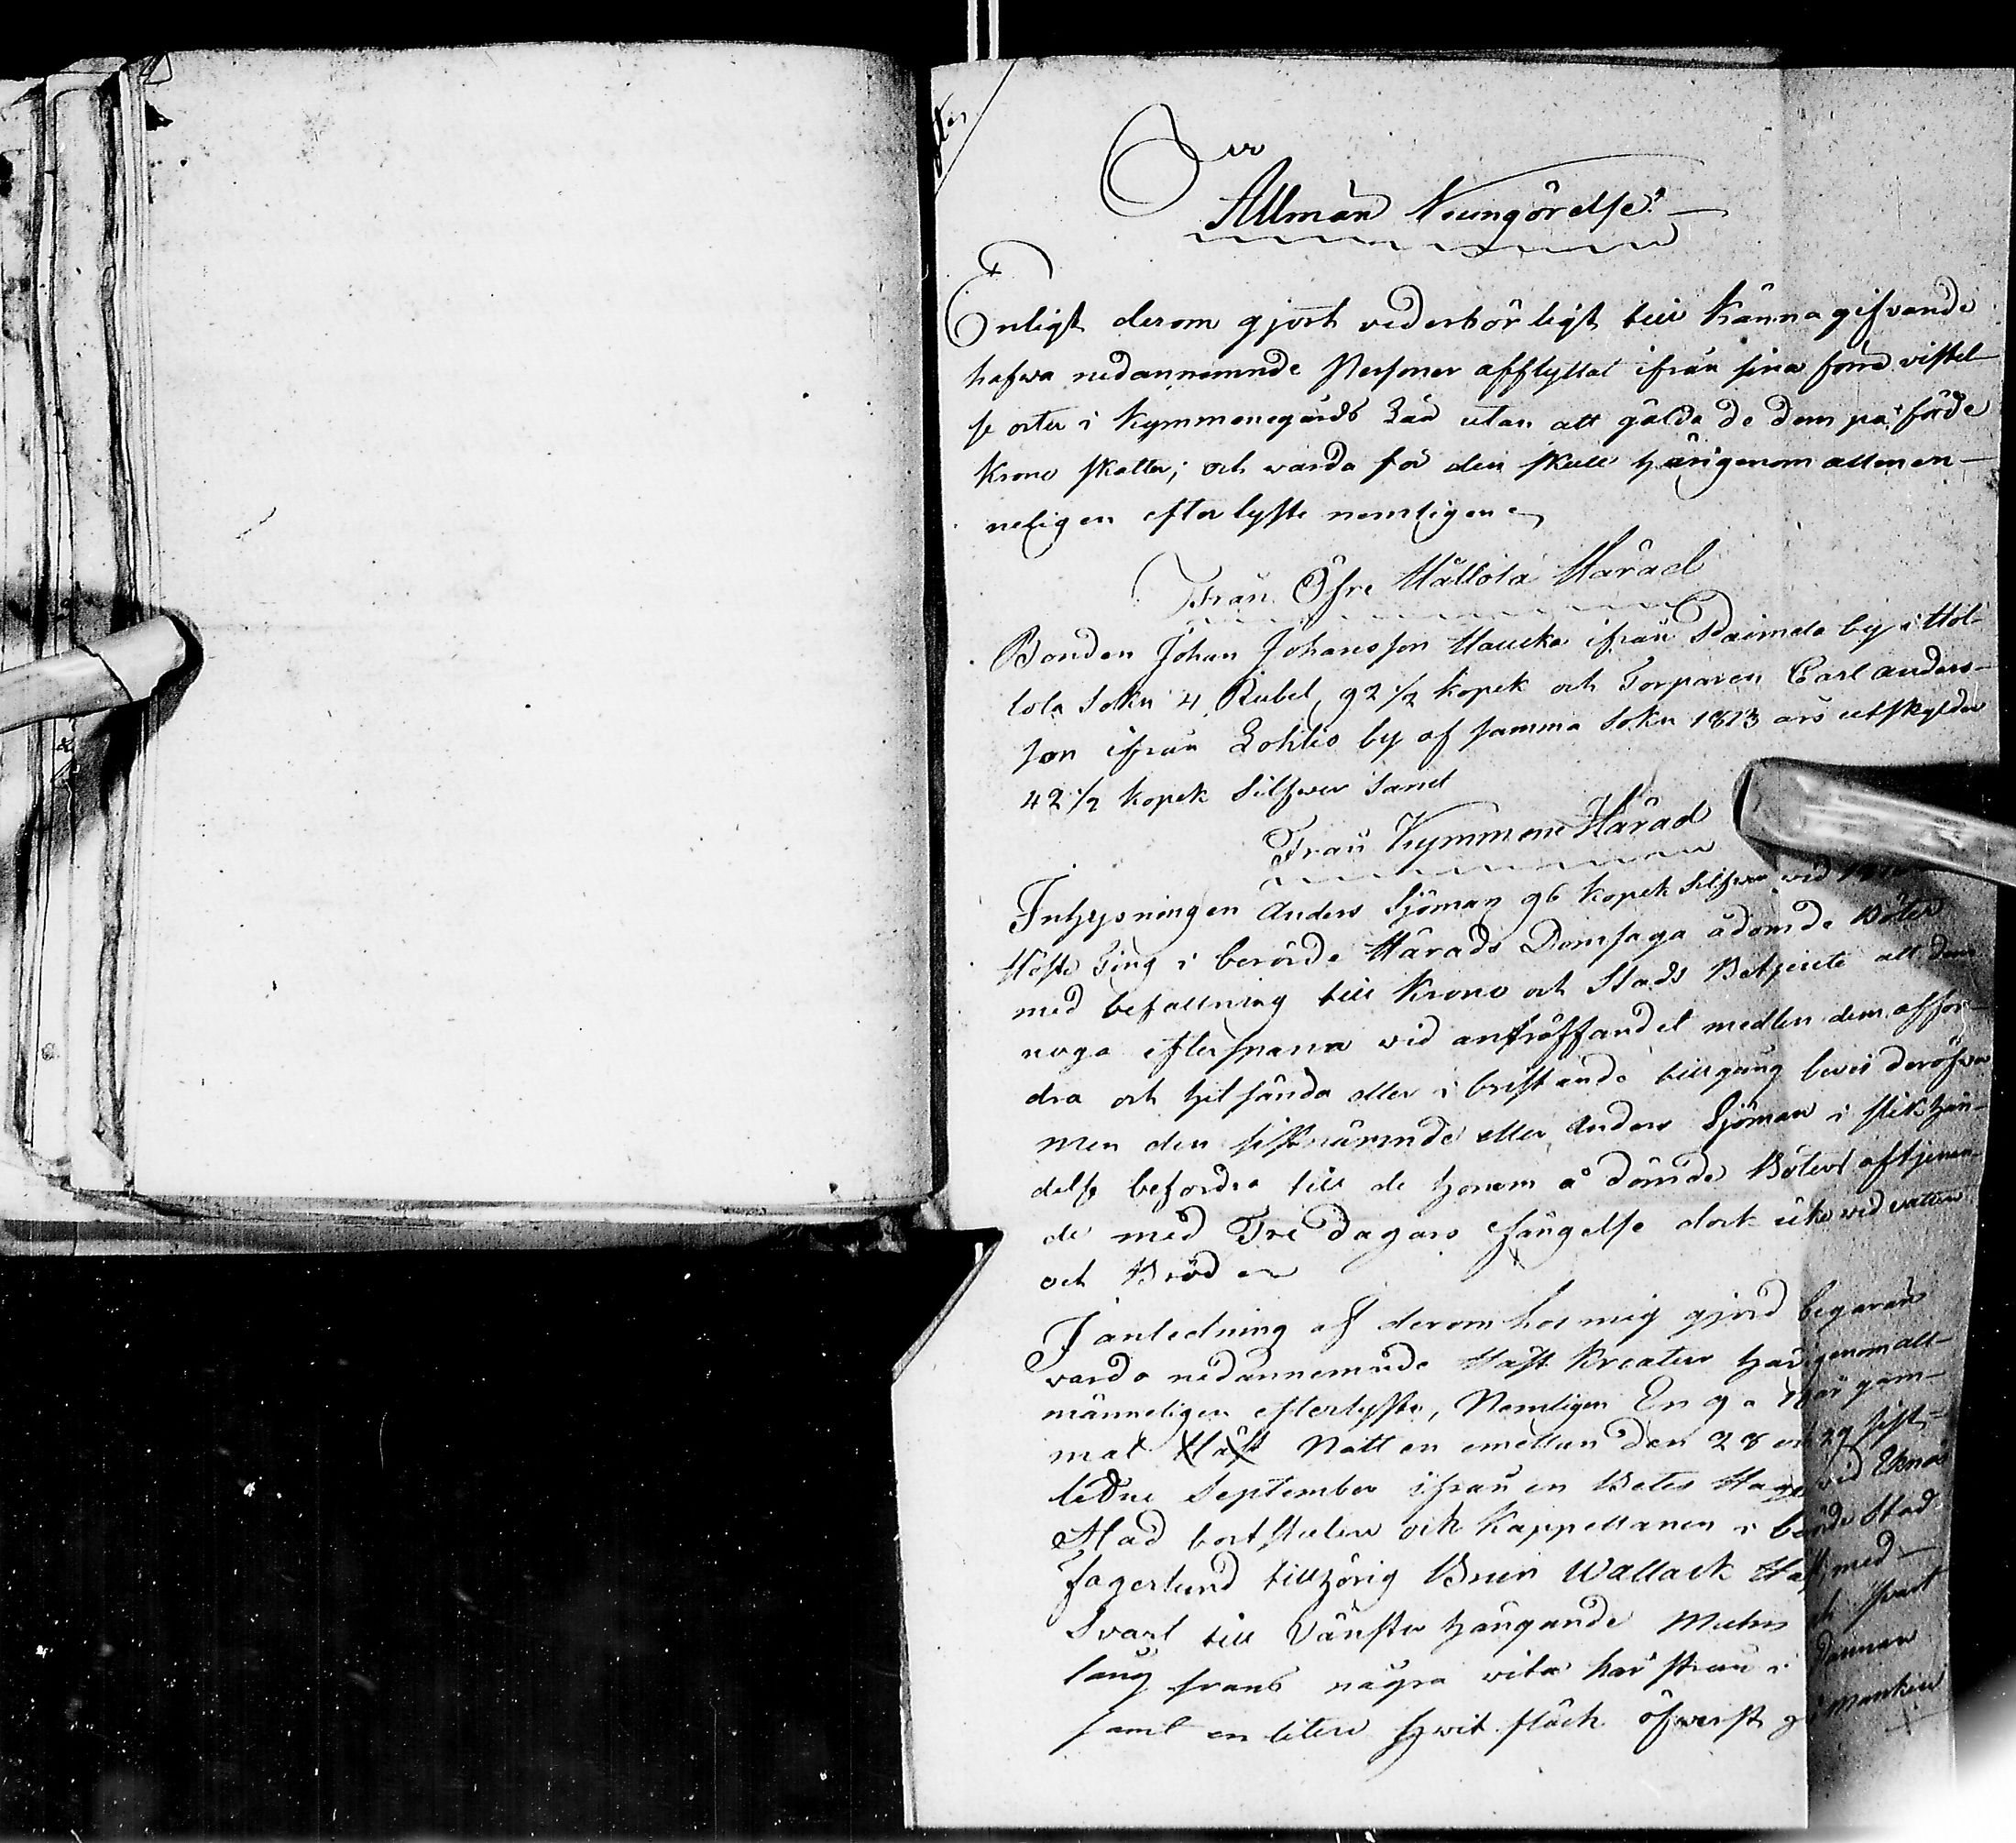 Allmän Kungörelse
Enligt derom gjort vederbörligt till känna gifvande
hafwa nedannemnde Personer afflyttat ifrån sina förra vistel-
se orter i Kymmenegårds Län utan att gälda de dem påförde
Krono skatter; och warda för den skull härigenom allmen-
neligen efterlyste nemligen
Från Öfre Hållola Härad
Bonden Johan Johansson Hauska ifrån Paimela by i Hol-
lola Sokn 4 Rubel 92 1/2 kopek och Torparen Carl Anders-
son ifrån Lohtis by af samma Sokn 1813 års utskylder
42 1/2 kopek Silfwer samt
Från Kymmene Härad
Inhysningen Anders Sjöman 96 kopek Silfwer vid
Höste Ting i berörde Härads Domsaga ådömde Böter
med befallning till Krono och Stads Betjente att dem
noga efterspana vid anträffandet medlen dem affor-
dra och hit sända eller i bristande tillgång bevis deröfwer
men den sistnämnde eller Anders Sjöman i slik hän-
delse befordra till de honom å dömde Böters aftjenan-
de med Tre dagars fängelse dock icke vid vatten
och Bröd
I anledning af derom hos mig gjord begäran
varda nedannemnde Häst Kreatur härigenom all-
männeligen efterlyste, Nemligen En 9 a 10 år gam-
mal Häst Natten emellan den 28 och 29 sist-
ledne September ifrån en Betes Hage vid Ekenäs
Stad bortstulen och Kappellanen i berörde Stad
Fagerlund tillhörig Brun Wallack Häst med
Svart till Vänster hängande Mahn och svart
lång svans några vita hår strån i Pannan
samt en liten hwit fläck öfwerst på Manken